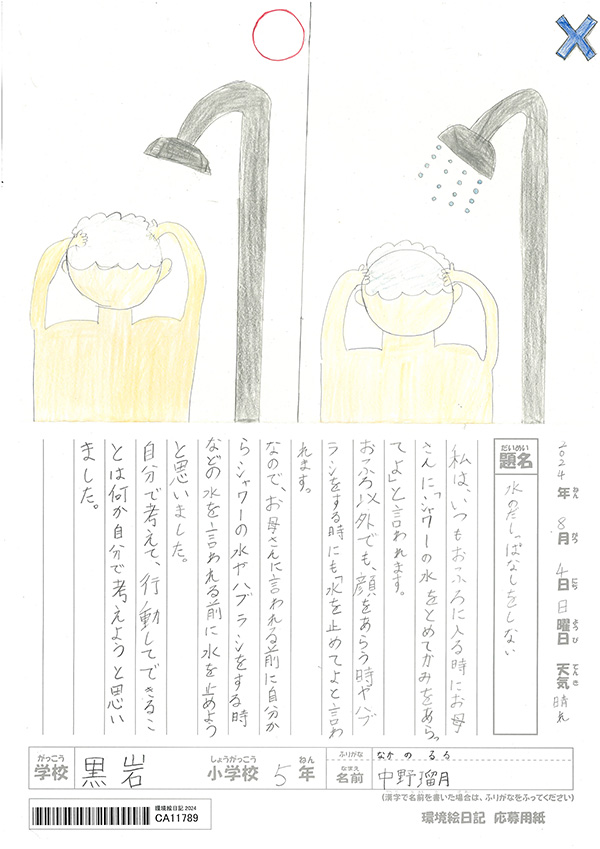 2024年 8月 4日 日曜日 天気 晴れ
ねん がつ にち ようび てんき
だいめい
題名
水のだしっぱなしをしない
私は、いつもおふろに入る時にお母
さんに「シャワーの水をとめてかみをあらっ
てよ」と言われます。
おふろ以外でも、顔をあらう時やハブ
ラシをする時にも「水を止めてよと言わ
れます。
なので、お母さんに言われる前に自分か
らシャワーの水やハブラシをする時
などの水を言われる前に水を止めよう
と思いました。
自分で考えて、行動してできるこ
とは何か自分で考えようと思い
ました。
がっこう
学校
黒岩
しょうがっこう
小学校
5
ねん
年
ふりがな
なかの るる
なまえ
名前
中野瑠月
(漢字で名前を書いた場合は、ふりがなをふってください)
環境絵日記 2024
CA11789
環境絵日記 応募用紙